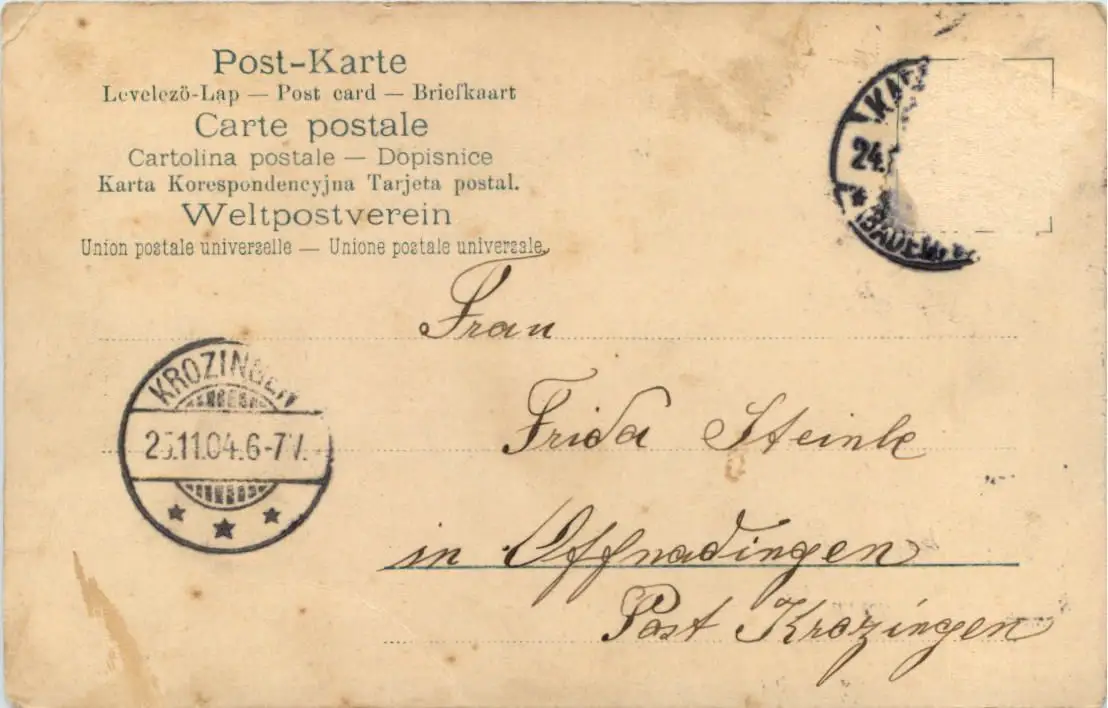 Post-Karte
Levelező-Lap — Post card — Briefkaart
Carte postale
Cartolina postale — Dopisnice
Karta Korespondencyjna Tarjeta postal.
Weltpostverein
Union postale universelle — Unione postale universale.
24.
(BADEN)
Frau
KROZINGEN
11.04.6-7V.
Frida Steinle
in Offnadingen
Post Krozingen